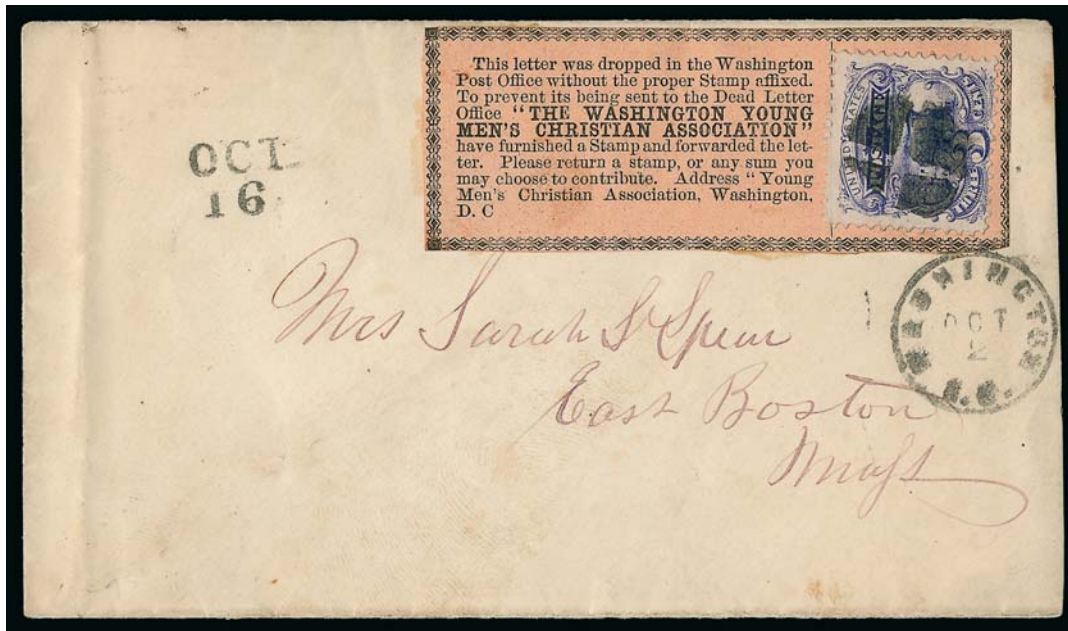 This letter was dropped in the Washington
Post Office without the proper Stamp affixed.
To prevent its being sent to the Dead Letter
Office "THE WASHINGTON YOUNG
MEN'S CHRISTIAN ASSOCIATION"
have furnished a Stamp and forwarded the let-
ter. Please return a stamp, or any sum you
may choose to contribute. Address "Young
Men's Christian Association, Washington,
D. C
UNITED STATES
POSTAGE
3
CENTS
OCT
16
WASHINGTON
OCT
2
D.C.
Mrs Sarah S Spear
East Boston
Mass